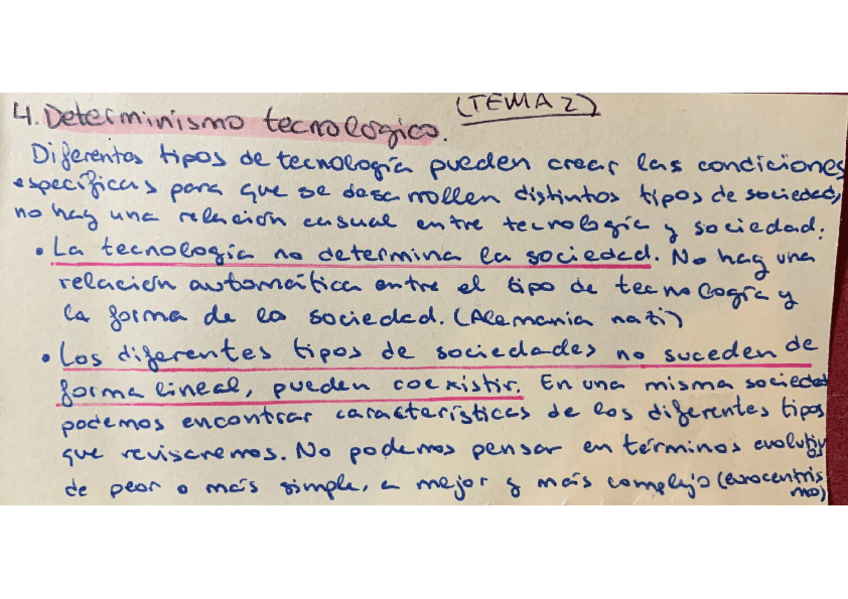 4. Determinismo tecnologico. (TEMA 2)
Diferentes tipos de tecnología pueden crear las condiciones
específicas para que se desarrollen distintos tipos de sociedad,
no hay una relación casual entre tecnología y sociedad:
• La tecnología no determina la sociedad. No hay una
relación automática entre el tipo de tecnología y
la forma de la sociedad. (Alemania nazi)
• Los diferentes tipos de sociedades no suceden de
forma lineal, pueden coexistir. En una misma sociedad
podemos encontrar características de los diferentes tipos
que revisaremos. No podemos pensar en términos evolutivos
de peor o más simple, a mejor y más complejo (eurocentrismo)